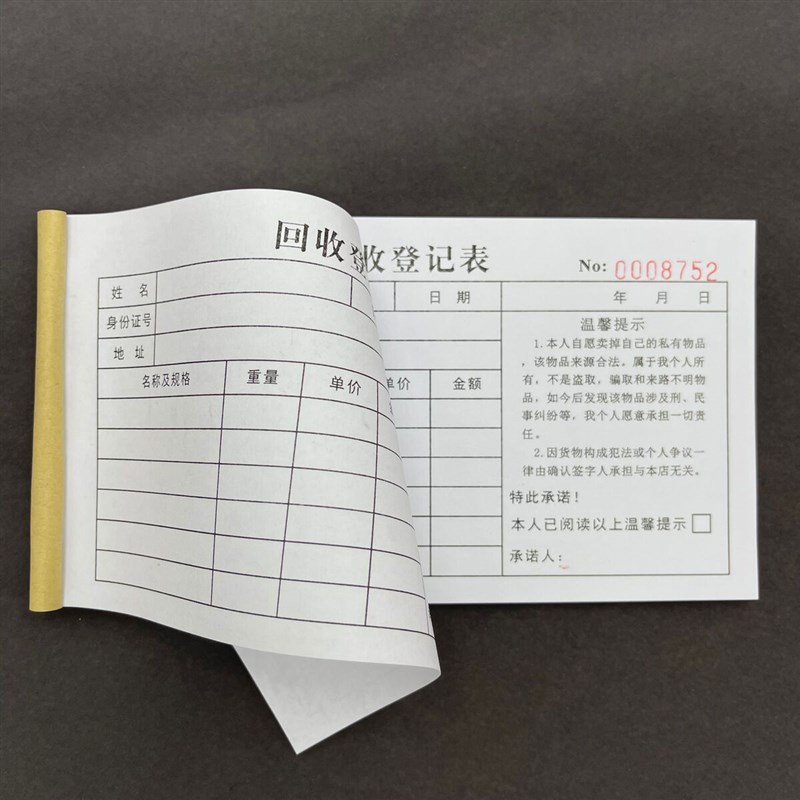 回收登
收登记表
No: 0008752
姓 名
身份证号
地 址
名称及规格 重量 单价
日 期 年 月 日
单价 金额
温馨提示
1.本人自愿卖掉自己的私有物品
，该物品来源合法。属于我个人所
有，不是盗取，骗取和来路不明物
品，如今后发现该物品涉及刑、民
事纠纷等，我个人愿意承担一切责
任。
2.因货物构成犯法或个人争议一
律由确认签字人承担与本店无关。
特此承诺！
本人已阅读以上温馨提示
承诺人：